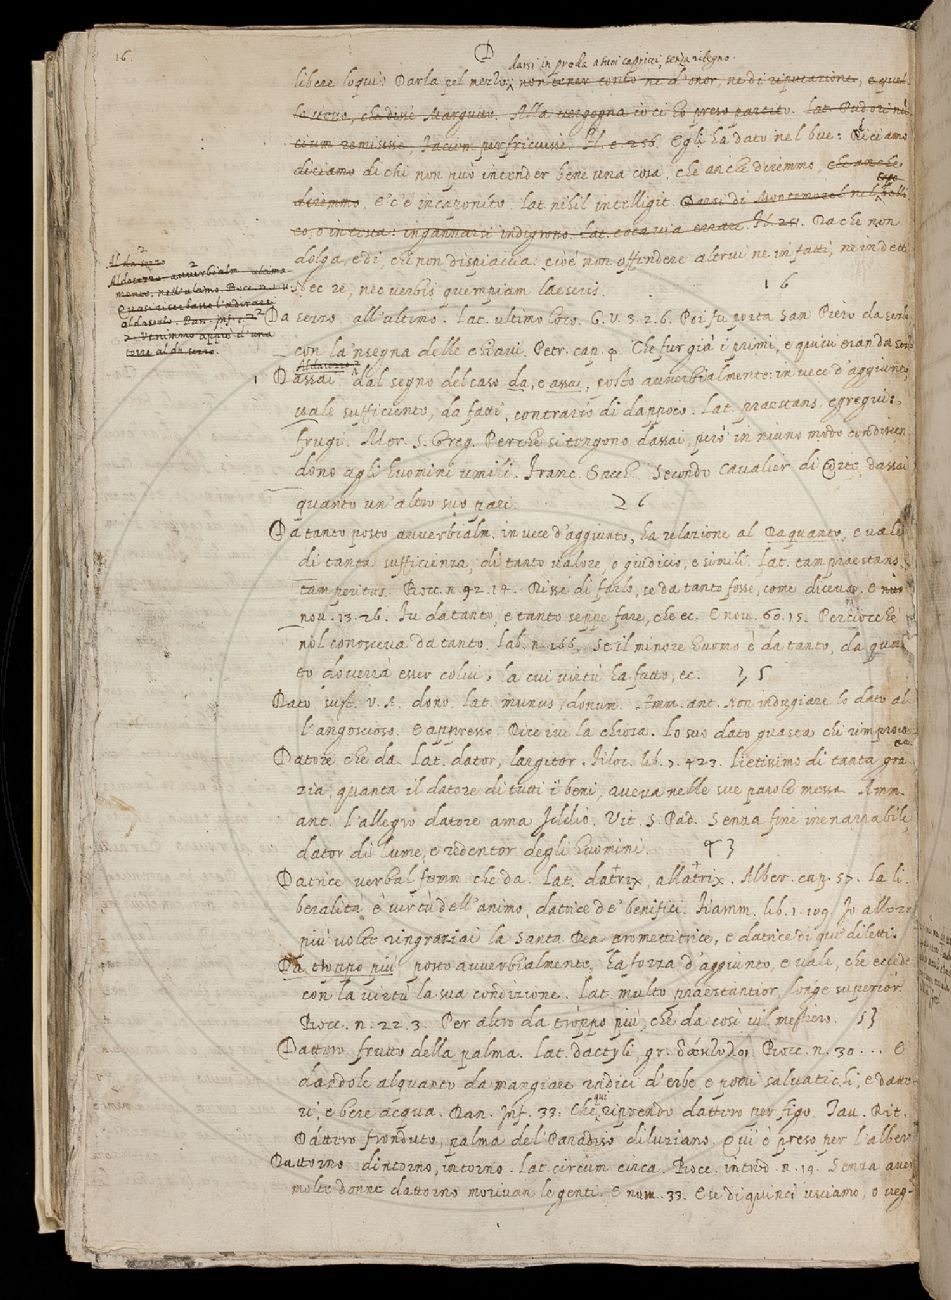 16.
D
darsi in preda a suoi capricci, senza ritegno.
libere loqui: Darla pel mezzo, non tener conto ne d'onor, ne di riputazione, e quel
che disse Margutte. Alla vergogna io ci ho preso partito. Lat. Pudori
remisisse, faciem perfricuisse. Fl. 256. Egli ha dato nel bue: Diciamo
diciamo di chi non può intender bene una cosa, che anche diremmo, che anche
diremmo, E' s'è incaponito. Lat. nihil intelligit. Darsi di nel
o in testa: ingannarsi indigrosso. Lat. tota via errare. Fl. Da che non
dolga, e di, che non dispiaccia: cioè non offendere altrui ne in fatti, ne in detti
Nec re, nec verbis quempiam laeseris. 16
Al da sezzo
Aldasezzo, avverbialm. ultima-
mente, nell'ultimo. Bocc. n.
aldassolo. Dan. Inf. 7.
Venimmo appiè d'una
torre al da sezzo.
Da sezzo all'ultimo. Lat. ultimo loco. G. V. 3. 2. 6. Poi fu porta San Piero da sezzo
con la 'nsegna delle chiavi. Petr. cap. 9. Che fur già i primi, e quivi eran da sezzo
Aldasezzo
Dassai dal segno del caso da, e assai, posto avverbialmente: in vece d'aggiunto,
vale sufficiente, da fatti, contrario di dappoco. Lat. praestans, egregius
frugi. Mor. S. Greg. Perchè si tengono dassai, però in niuno modo condiscen
dono agli huomini umili. Franc. Sacch. Secondo Cavalier di Corte, dassai
quanto un'altro suo pari. 26
Da tanto posto avverbialm. in vece d'aggiunto, ha relazione al Daquanto, e vale
di tanta sufficienza, di tanto valore, o giudicio, e simili. Lat. tam praestans,
tam peritus. Bocc. n. 92. 14. Disse di farlo, se da tanto fosse, come diceva. E
nov. 13. 26. Fu da tanto, e tanto seppe fare, che ec. E nov. 60. 15. Perciocchè
nol conosceva da tanto. Lab. n. 166. Se il minore huomo è da tanto, da quan
to dovrrà esser colui, la cui virtù ha fatto, ec. 35
Dato sust. V. A. dono. Lat. munus, donum. Amm. ant. Non indugiare lo dato al
l'angoscioso. E appresso. Dice ivi la chiosa. Lo suo dato guasta chi rimprove
Datore che da. Lat. dator, largitor. Filoc. lib. 7. 427. Lietissimo di tanta gra
zia, quanta il datore di tutti i beni, aveva nelle sue parole messa. Amm.
ant. l'allegro datore ama Iddio. Vit. S. Pad. Senza fine inenarrabile
dator di lume, e redentor degli huomini. 43
Datrice verbal femm. che da. Lat. datrix, allatrix. Alber. cap. 57. La li
beralità è virtù dell'animo, datrice de' benifici. Fiamm. lib. 1. 109. Io allora
più volte ringraziai la Santa Dea promettitrice, e datrice di que' diletti.
Da troppo più posto avverbialmente, ha forza d'aggiunto, e vale, che eccede
con la virtù la sua condizione. Lat. multo praestantior, longe superior.
Bocc. n. 22. 3. Per altro da troppo più, che da così vil mestiero. 53
Dattero frutto della palma. Lat. dactyli, gr. δάκτυλοι. Bocc. n. 30... E
dandole alquanto da mangiare radici d'erbe, e pomi salvatichi, e datte-
ri, e bere acqua. Dan. Inf. 33. Che qui riprendo dattero per figo. Tav. Rit.
Dattero fronduto, palma del Paradiso diluziano. Qui è preso per l'albero
Dattorno dintorno, intorno. Lat. circum circa. Bocc. introd. n. 19. Senza aver
molte donne dattorno morivan le genti. E nom. 33. E se di quinci usciamo, o veg-